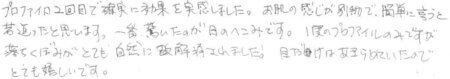 プロファイロ2回目で確実に効果を実感しました。お肌の感じが別物で、簡単に言うと
若返ったと思います。一番驚いたのが目のへこみです。1度のプロファイルのみですが
落ちくぼみがとても自然に改解消されました。目だけはあきらめていたので
とても嬉しいです。